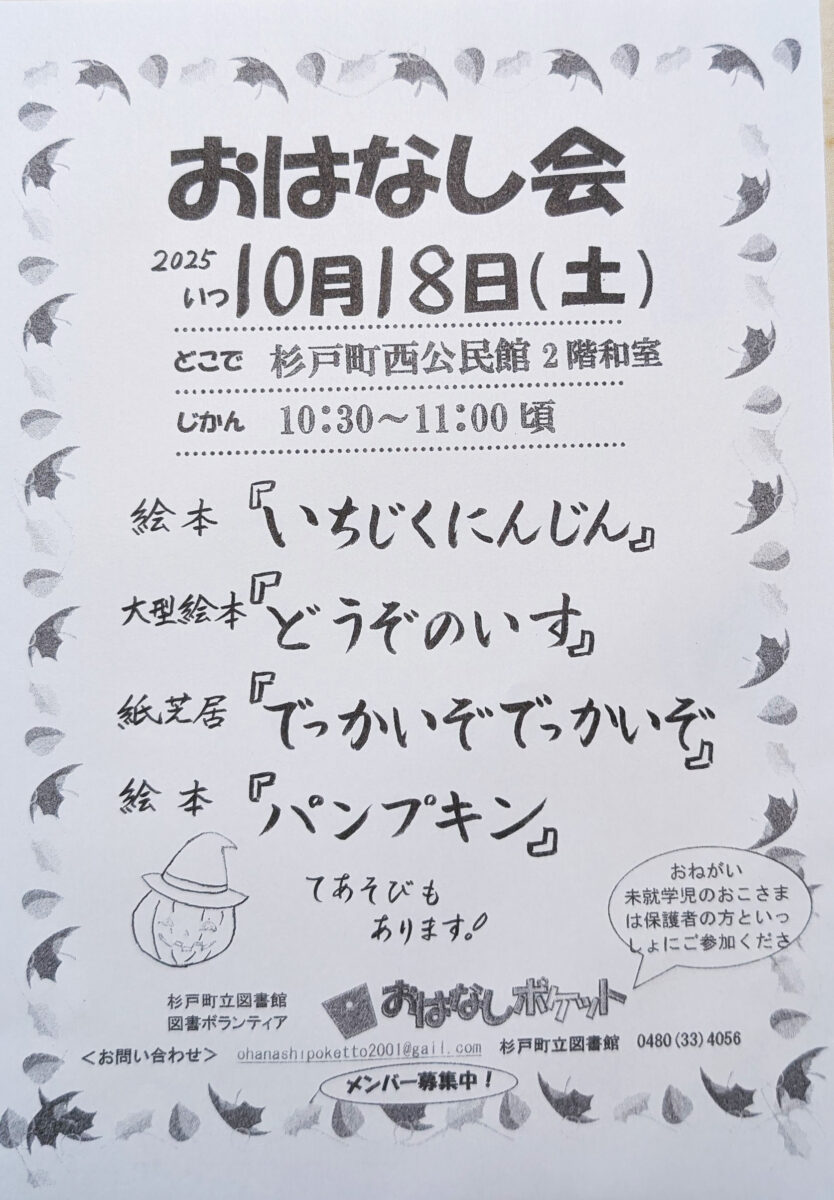 おはなし会
2025
いつ 10月18日(土)
どこで 杉戸町西公民館 2階和室
じかん 10:30～11:00 頃
絵本 『いちじくにんじん』
大型絵本 『どうぞのいす』
紙芝居 『でっかいぞでっかいぞ』
絵本 『パンプキン』
てあそびも
あります。
おねがい
未就学児のおこさま
は保護者の方といっ
しょにご参加くださ
杉戸町立図書館
図書ボランティア
おはなしポケット
＜お問い合わせ＞ ohanashipoketto2001@gail.com 杉戸町立図書館 0480(33)4056
メンバー募集中！